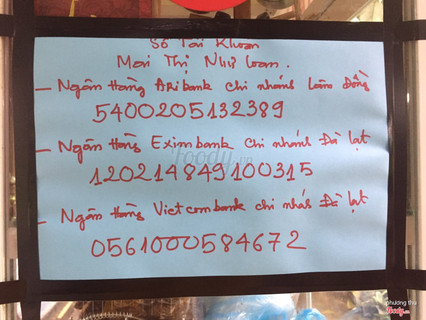 Số Tài Khoản
Mai Thị Như Loan.
- Ngân Hàng ARibank chi nhánh Lâm Đồng
5400205132389
- Ngân Hàng Eximbank chi nhánh Đà lạt
120214849100315
- Ngân Hàng Vietcombank chi nhánh Đà lạt
0561000584672
foody.vn
phương thu
foody.vn